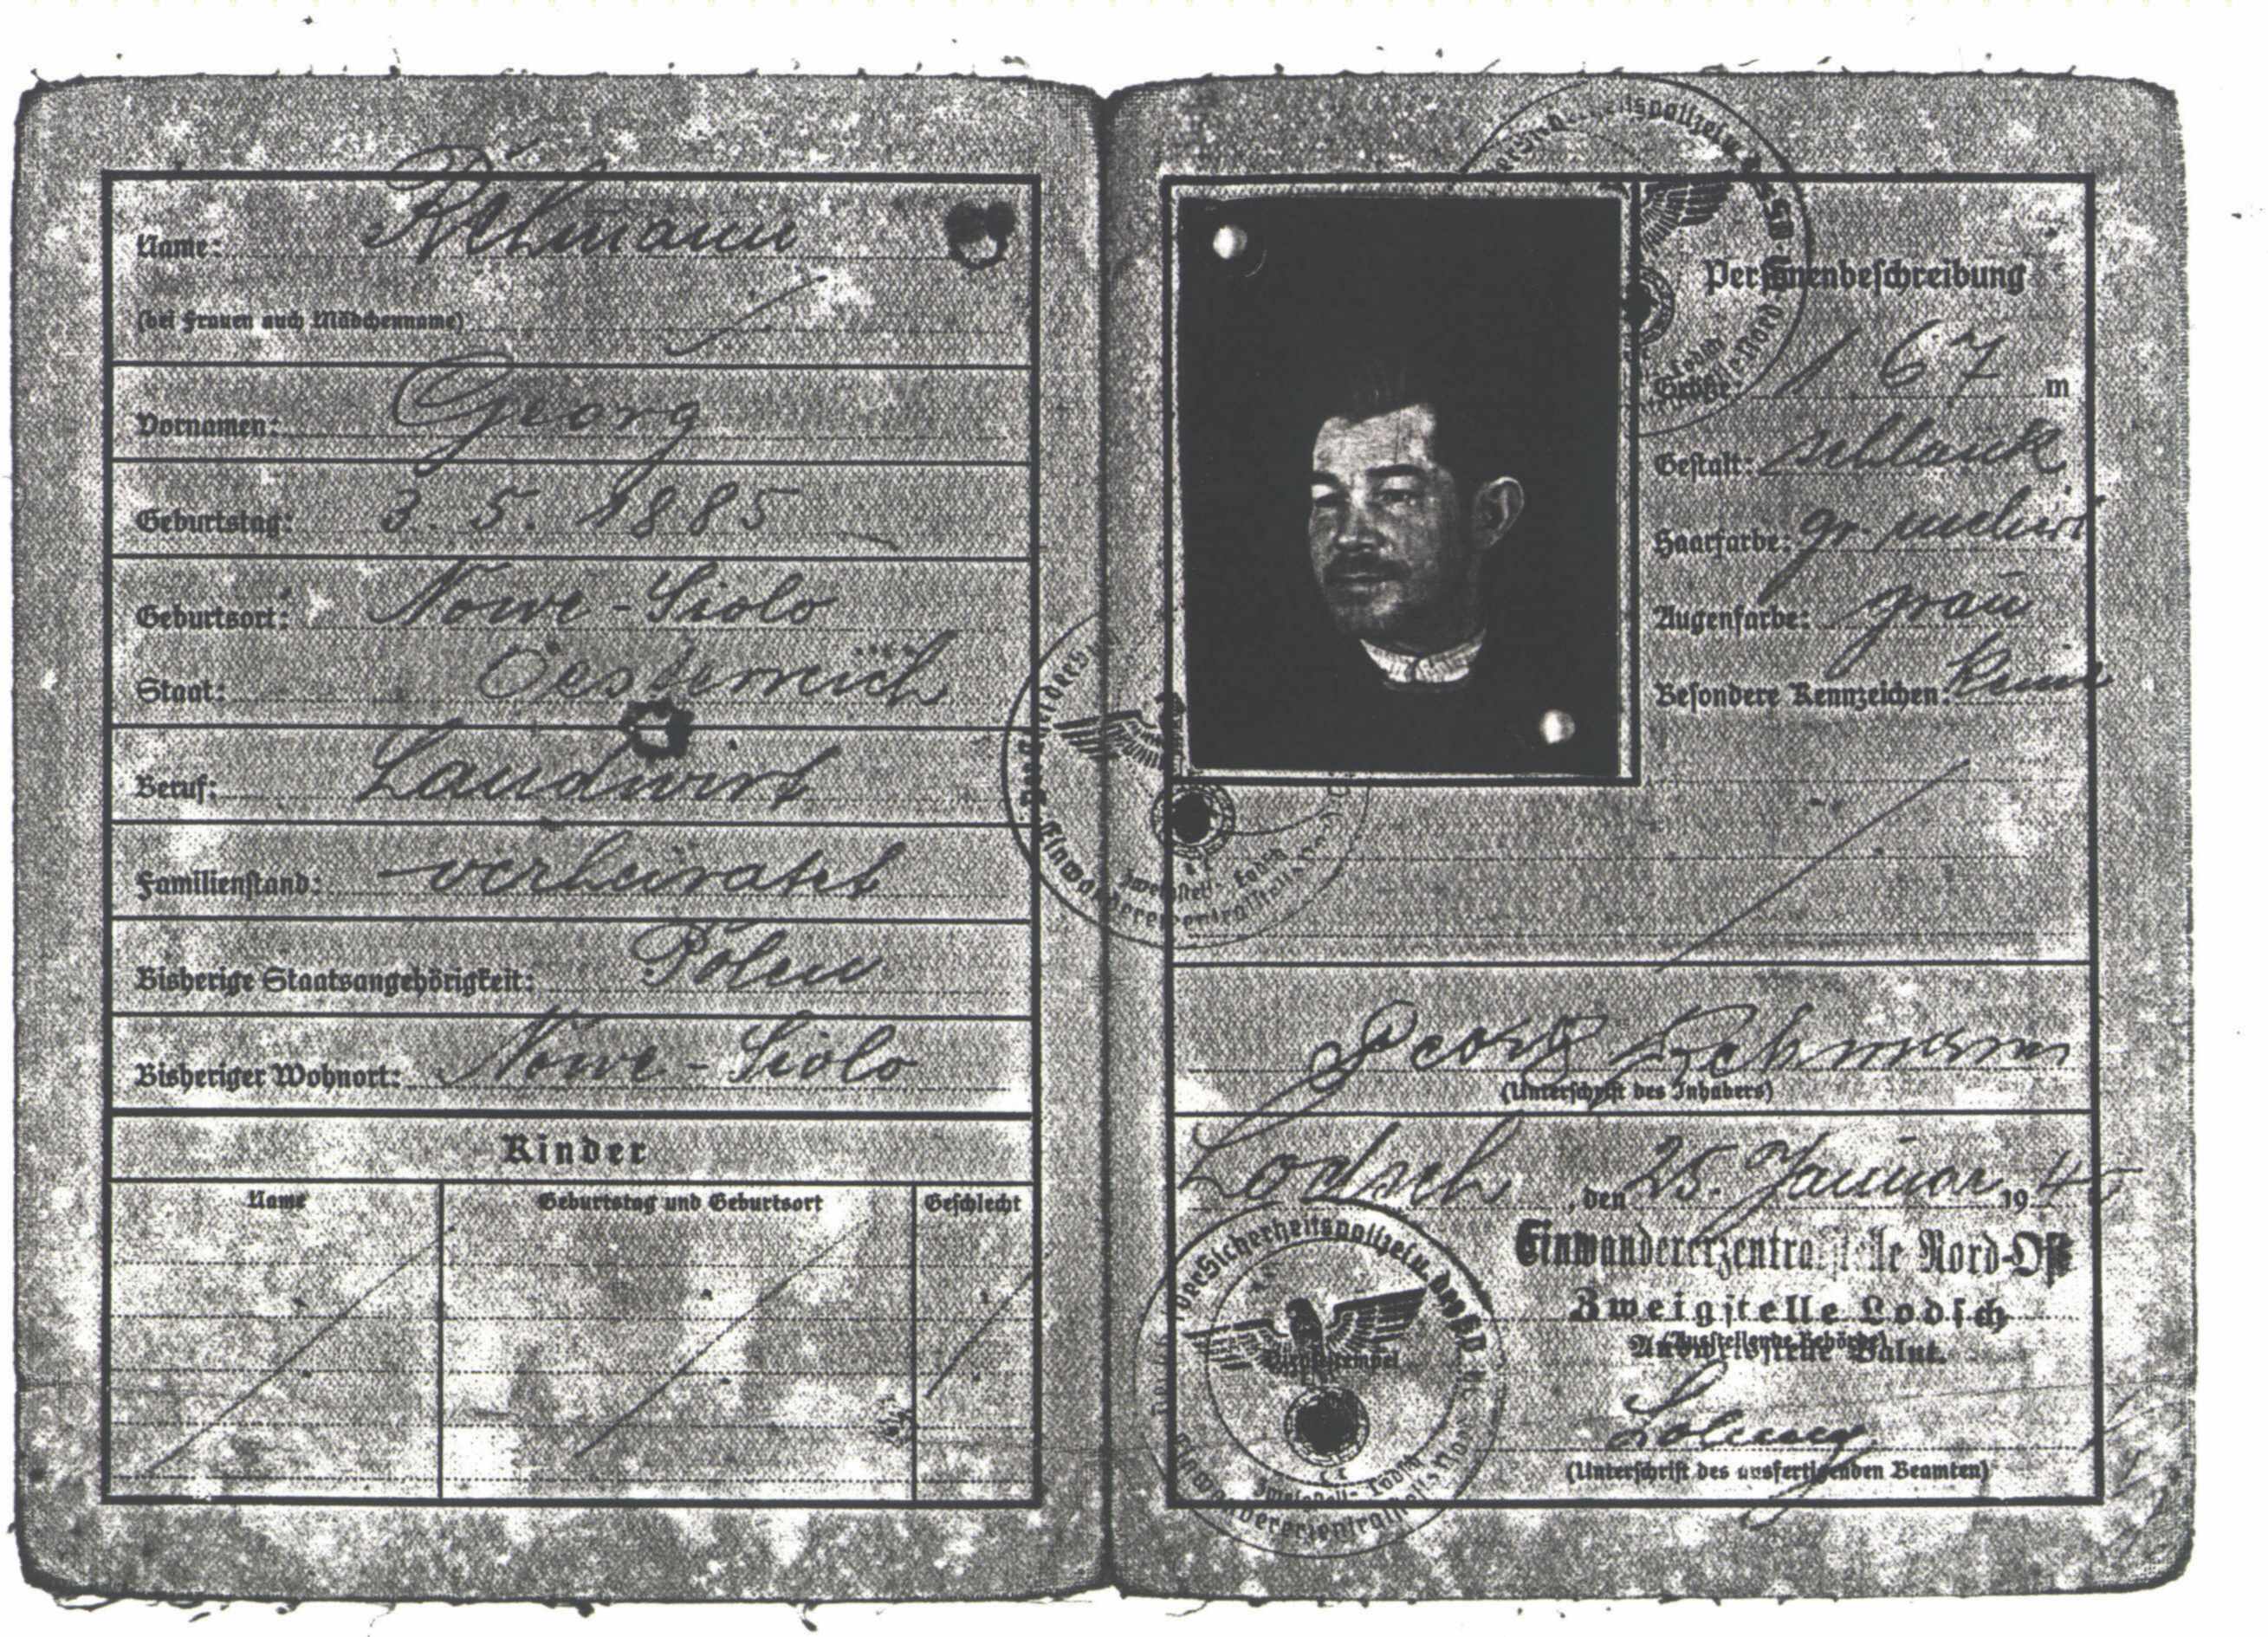 Name: Rehmann
(bei Frauen auch Mädchenname)
Vornamen: Georg
Geburtstag: 3. 5. 1885
Geburtsort: Nowe-Siolo
Staat: Oesterreich
Beruf: Landwirt
Familienstand: verheiratet
Bisherige Staatsangehörigkeit: Polen
Bisheriger Wohnort: Nowe-Siolo
Kinder
Name Geburtstag und Geburtsort Geschlecht
Personenbeschreibung
Größe: 1 67 m
Gestalt: schlank
Haarfarbe: gr. meliert
Augenfarbe: grau
Besondere Kennzeichen: keine
Zweigstelle Lodsch
Einwandererzentralstelle Nord
Georg Rehmann
(Unterschrift des Inhabers)
Lodsch, den 25. Januar 1940
Einwandererzentralstelle Nord-Ost
Zweigstelle Lodsch
(Ausstellende Behörde)
Ausweisstelle Balut.
der Sicherheitspolizei u. des SD
Dienststempel
Zweigstelle Lodsch
Einwandererzentralstelle Nord
(Unterschrift des ausfertigenden Beamten)